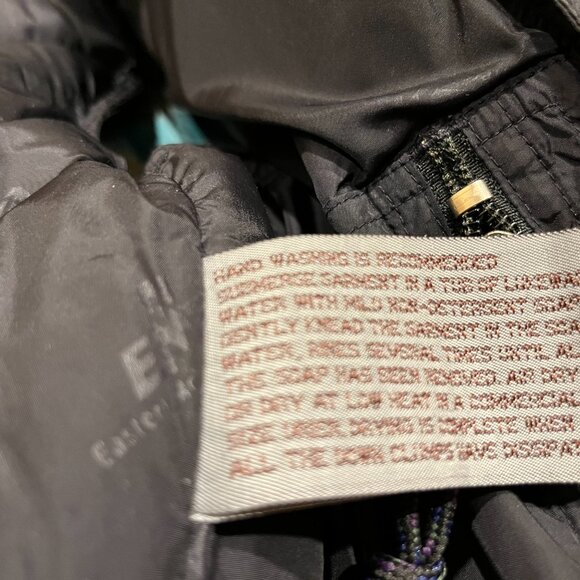 HAND WASHING IS RECOMMENDED
SUBMERGE GARMENT IN A TUB OF LUKEWA
WATER WITH MILD NON-DETERGENT SOAP
GENTLY KNEAD THE GARMENT IN THE SOA
WATER, RINSE SEVERAL TIMES UNTIL AL
THE SOAP HAS BEEN REMOVED. AIR DRY
OR DRY AT LOW HEAT IN A COMMERCIAL
SIZE DRYER. DRYING IS COMPLETE WHEN
ALL THE DOWN CLUMPS HAVE DISSIPA
Eastern